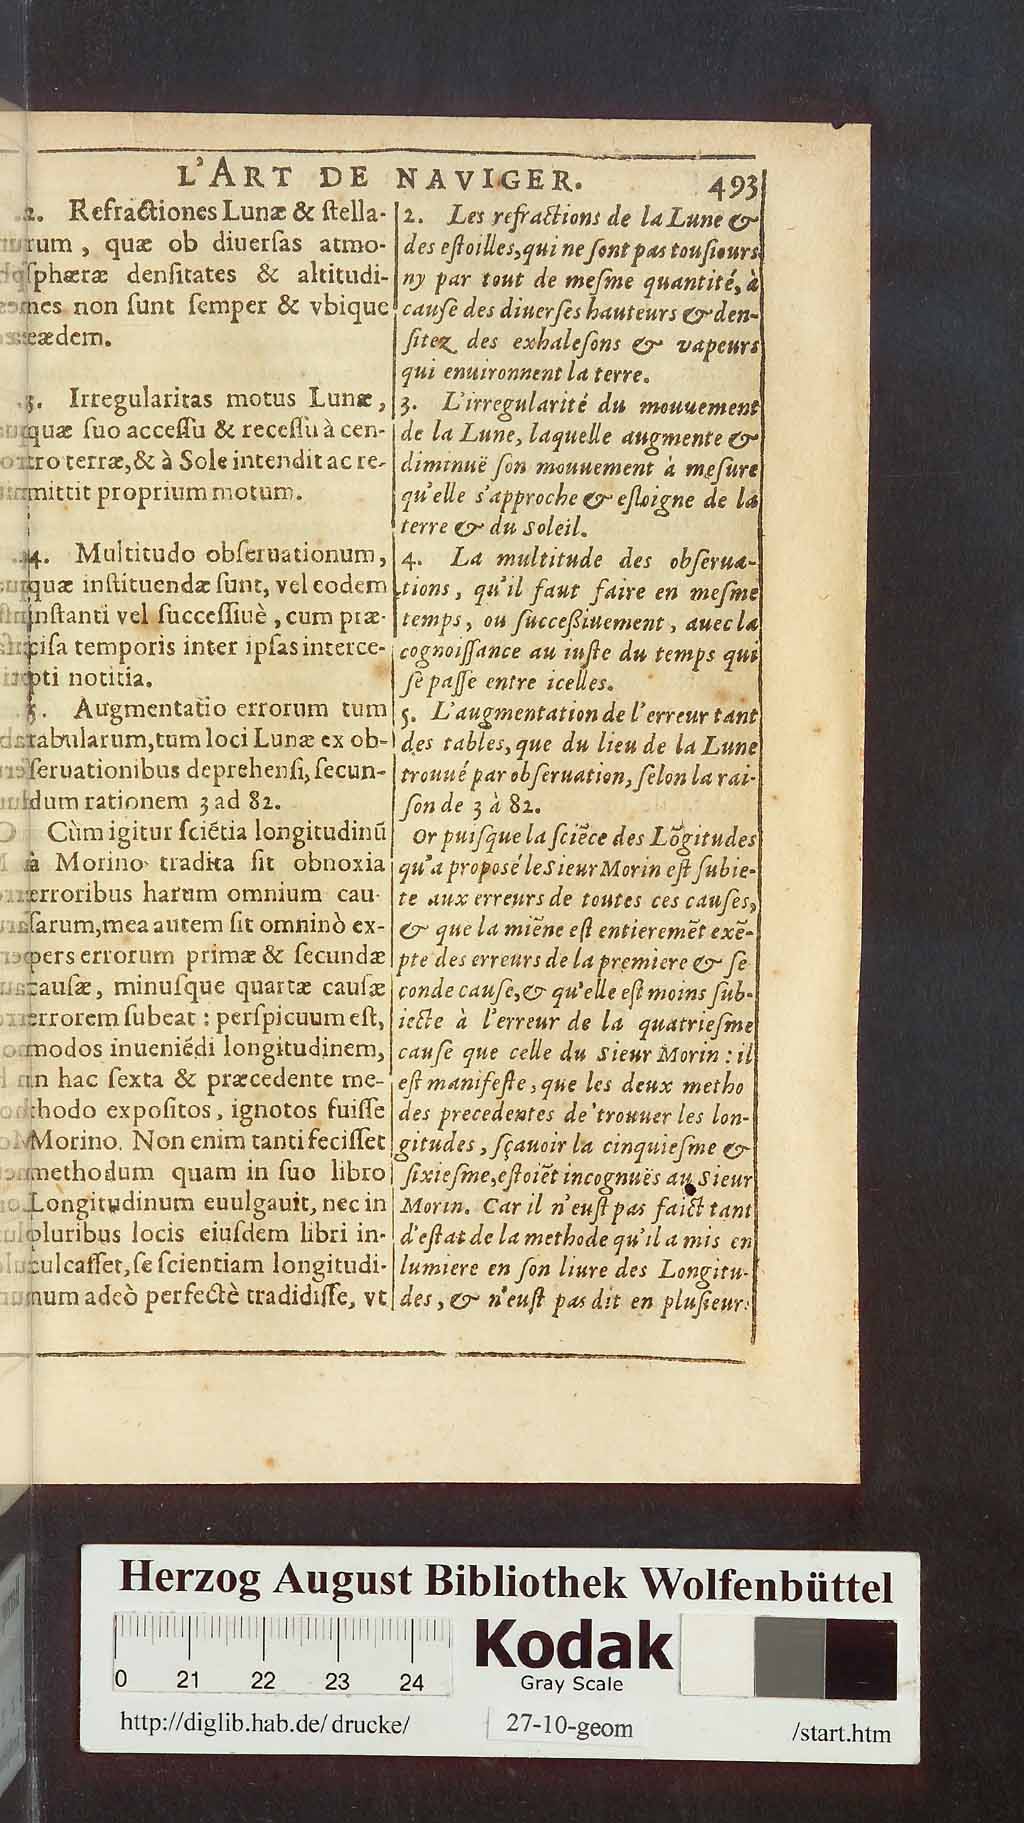 L'ART DE NAVIGER. 493
2. Refractiones Lunæ & ſtella-
rum, quæ ob diuerſas atmo-
ſphæræ denſitates & altitudi-
nes non ſunt ſemper & vbique
eædem.
3. Irregularitas motus Lunæ,
quæ ſuo acceſſu & receſſu à cen-
tro terræ, & à Sole intendit ac re-
mittit proprium motum.
4. Multitudo obſeruationum,
quæ inſtituendæ ſunt, vel eodem
inſtanti vel ſucceſſiuè, cum præ-
ciſa temporis inter ipſas interce-
pti notitia.
5. Augmentatio errorum tum
tabularum, tum loci Lunæ ex ob-
ſeruationibus deprehenſi, ſecun-
dum rationem 3 ad 82.
Cùm igitur ſciẽtia longitudinũ
à Morino tradita ſit obnoxia
erroribus harum omnium cau-
ſarum, mea autem ſit omninò ex-
pers errorum primæ & ſecundæ
cauſæ, minuſque quartæ cauſæ
errorem ſubeat : perſpicuum eſt,
modos inueniẽdi longitudinem,
in hac ſexta & præcedente me-
thodo expoſitos, ignotos fuiſſe
Morino. Non enim tanti feciſſet
methodum quam in ſuo libro
Longitudinum euulgauit, nec in
pluribus locis eiuſdem libri in-
culcaſſet, ſe ſcientiam longitudi-
num adeò perfectè tradidiſſe, vt
2. Les refractions de la Lune &
des eſtoilles, qui ne ſont pas touſiours
ny par tout de meſme quantité, à
cauſe des diuerſes hauteurs & den-
ſitez des exhaleſons & vapeurs
qui enuironnent la terre.
3. L'irregularité du mouuement
de la Lune, laquelle augmente &
diminuë ſon mouuement à meſure
qu'elle s'approche & eſloigne de la
terre & du Soleil.
4. La multitude des obſerua-
tions, qu'il faut faire en meſme
temps, ou ſucceßiuement, auec la
cognoiſſance au iuſte du temps qui
ſe paſſe entre icelles.
5. L'augmentation de l'erreur tant
des tables, que du lieu de la Lune
trouué par obſeruation, ſelon la rai-
ſon de 3 à 82.
Or puiſque la ſciẽce des Lõgitudes
qu'a propoſé le Sieur Morin eſt ſubie-
te aux erreurs de toutes ces cauſes,
& que la miẽne eſt entieremẽt exẽ-
pte des erreurs de la premiere & ſe
conde cauſe, & qu'elle eſt moins ſub-
iecte à l'erreur de la quatrieſme
cauſe que celle du Sieur Morin : il
eſt manifeſte, que les deux metho
des precedentes de trouuer les lon-
gitudes, ſçauoir la cinquieſme &
ſixieſme, eſtoiẽt incognuës au Sieur
Morin. Car il n'euſt pas faict tant
d'eſtat de la methode qu'il a mis en
lumiere en ſon liure des Longitu-
des, & n'euſt pas dit en pluſieur
Herzog August Bibliothek Wolfenbüttel
0 21 22 23 24
Kodak
Gray Scale
http://diglib.hab.de/drucke/ 27-10-geom /start.htm